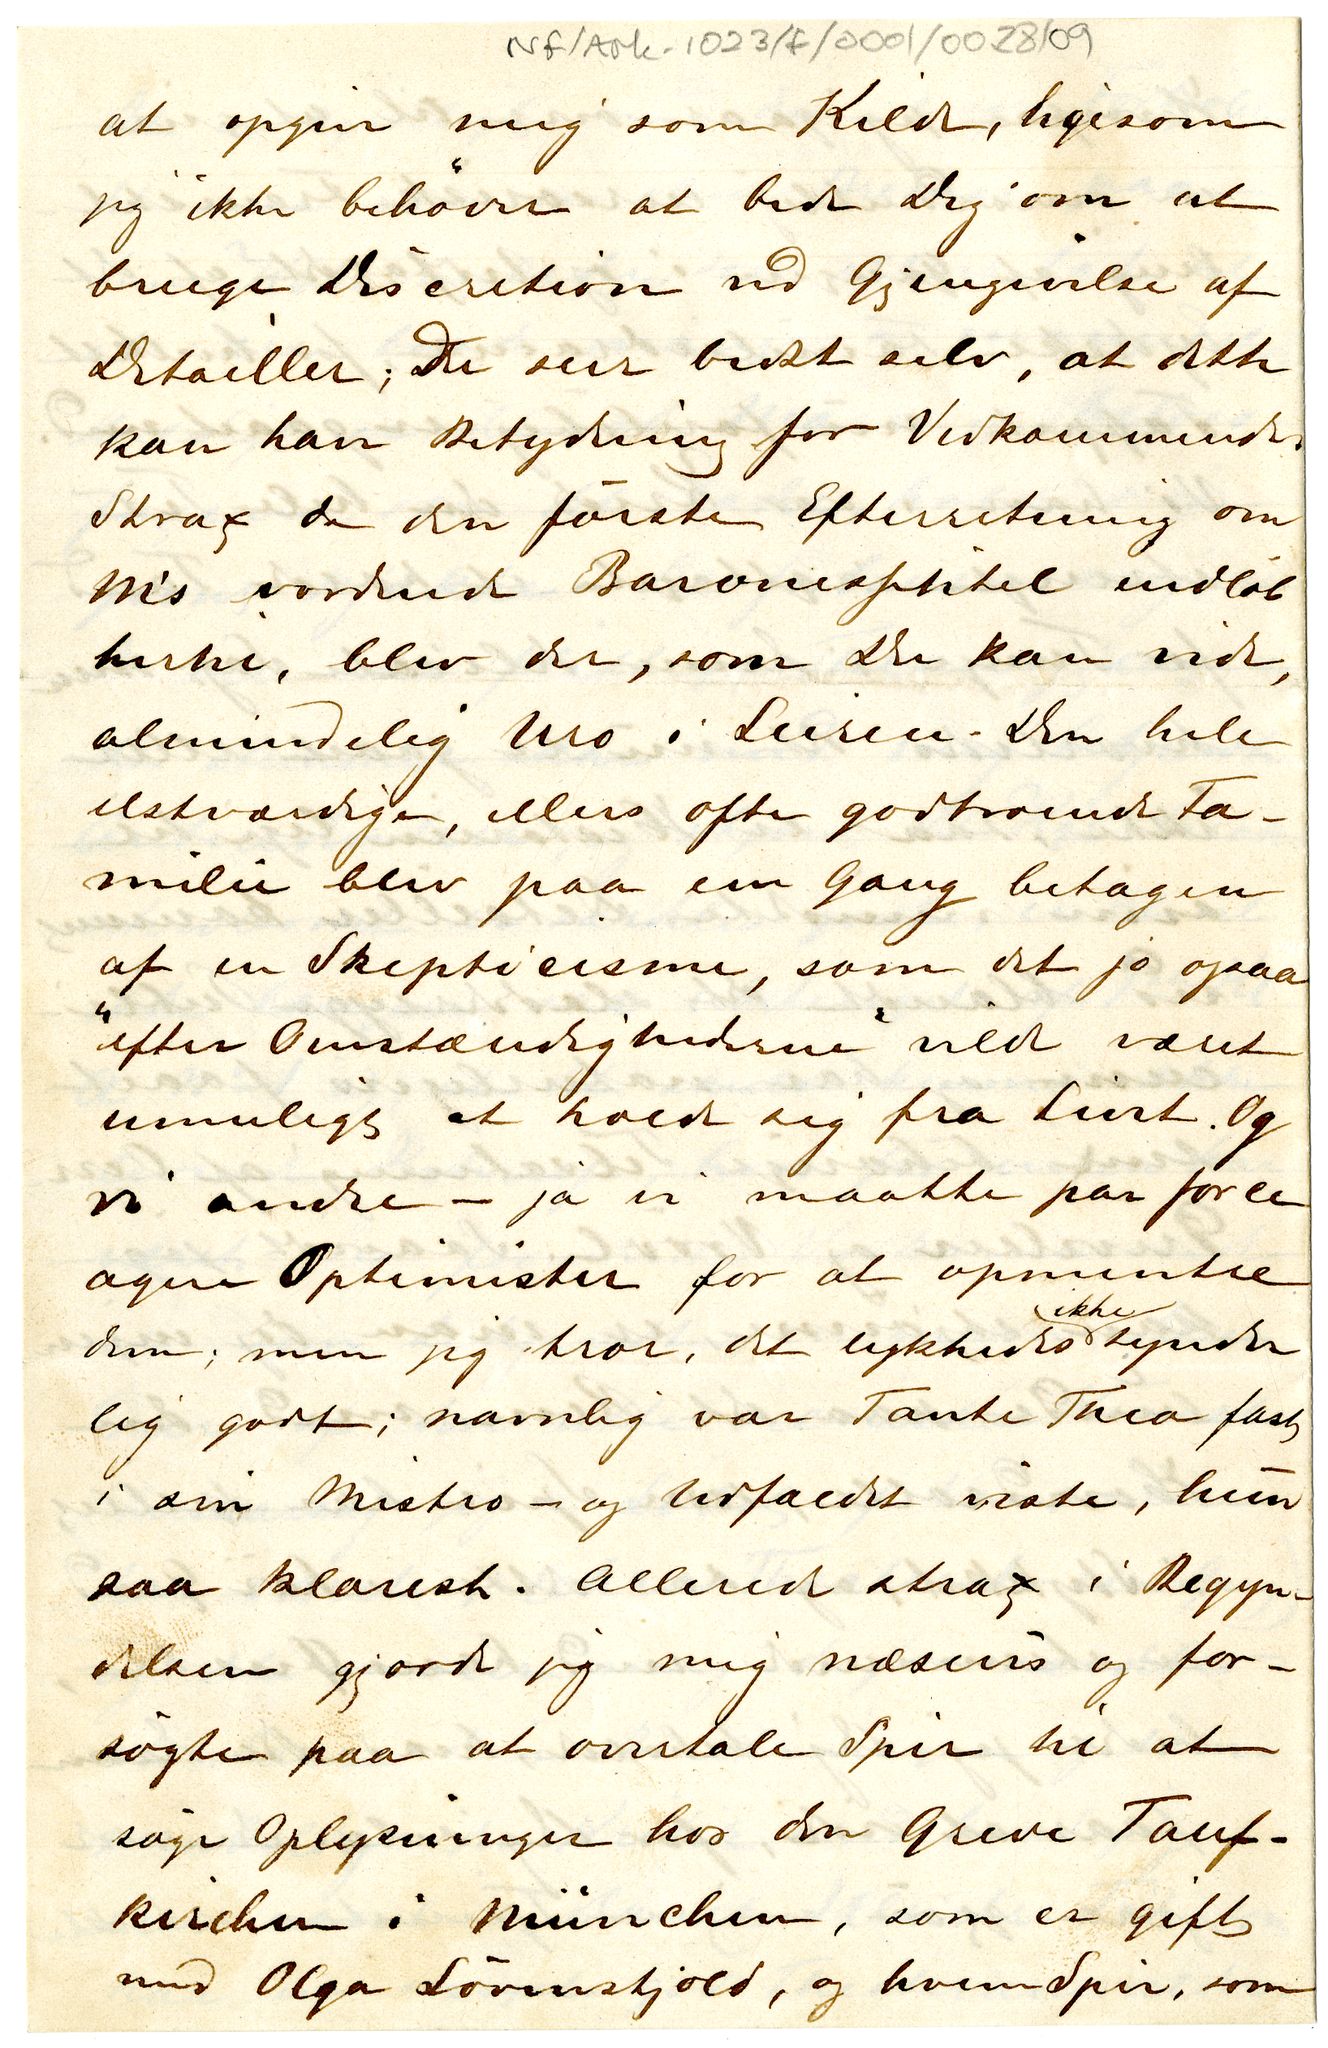 NF/Ark-1023/F/0001/0028/09
at opgive mig som Kilde, ligesom
jeg ikke behöver at bede Dig om at
bruge Discretion ved Gjengivelse af
Detailler; Du seer bedst selv, at dette
kan have Betydning for Vedkommende.
Strax da den förste Efterretning om
M's vordende Baronesstitel indlöb
hertil, blev der, som Du kan vide,
almindelig Uro i Leiren. Den hele
elskværdige, ellers ofte godtroende Fa-
milie blev paa een Gang betagen
af en Skepticisme, som det jo ogsaa
"efter Omstændighederne" vilde været
umuligt at holde sig fra Livet. Og
vi andre – ja vi maatte par force
agere Optimister for at opmuntre
dem; men jeg tror, det lykkedes ikke synder
lig godt; navnlig var Tante Thea fast
i sin Mistro – og Udfaldet viste, hun
saa klarest. Allerede strax i Begyn-
delsen gjorde jeg mig næsviis og for-
sögte paa at overtale Spir til at
söge Oplysninger hos den Greve Tauf-
kirchen i München, som er gift
med Olga Lövenskjold, og hvem Spir, som